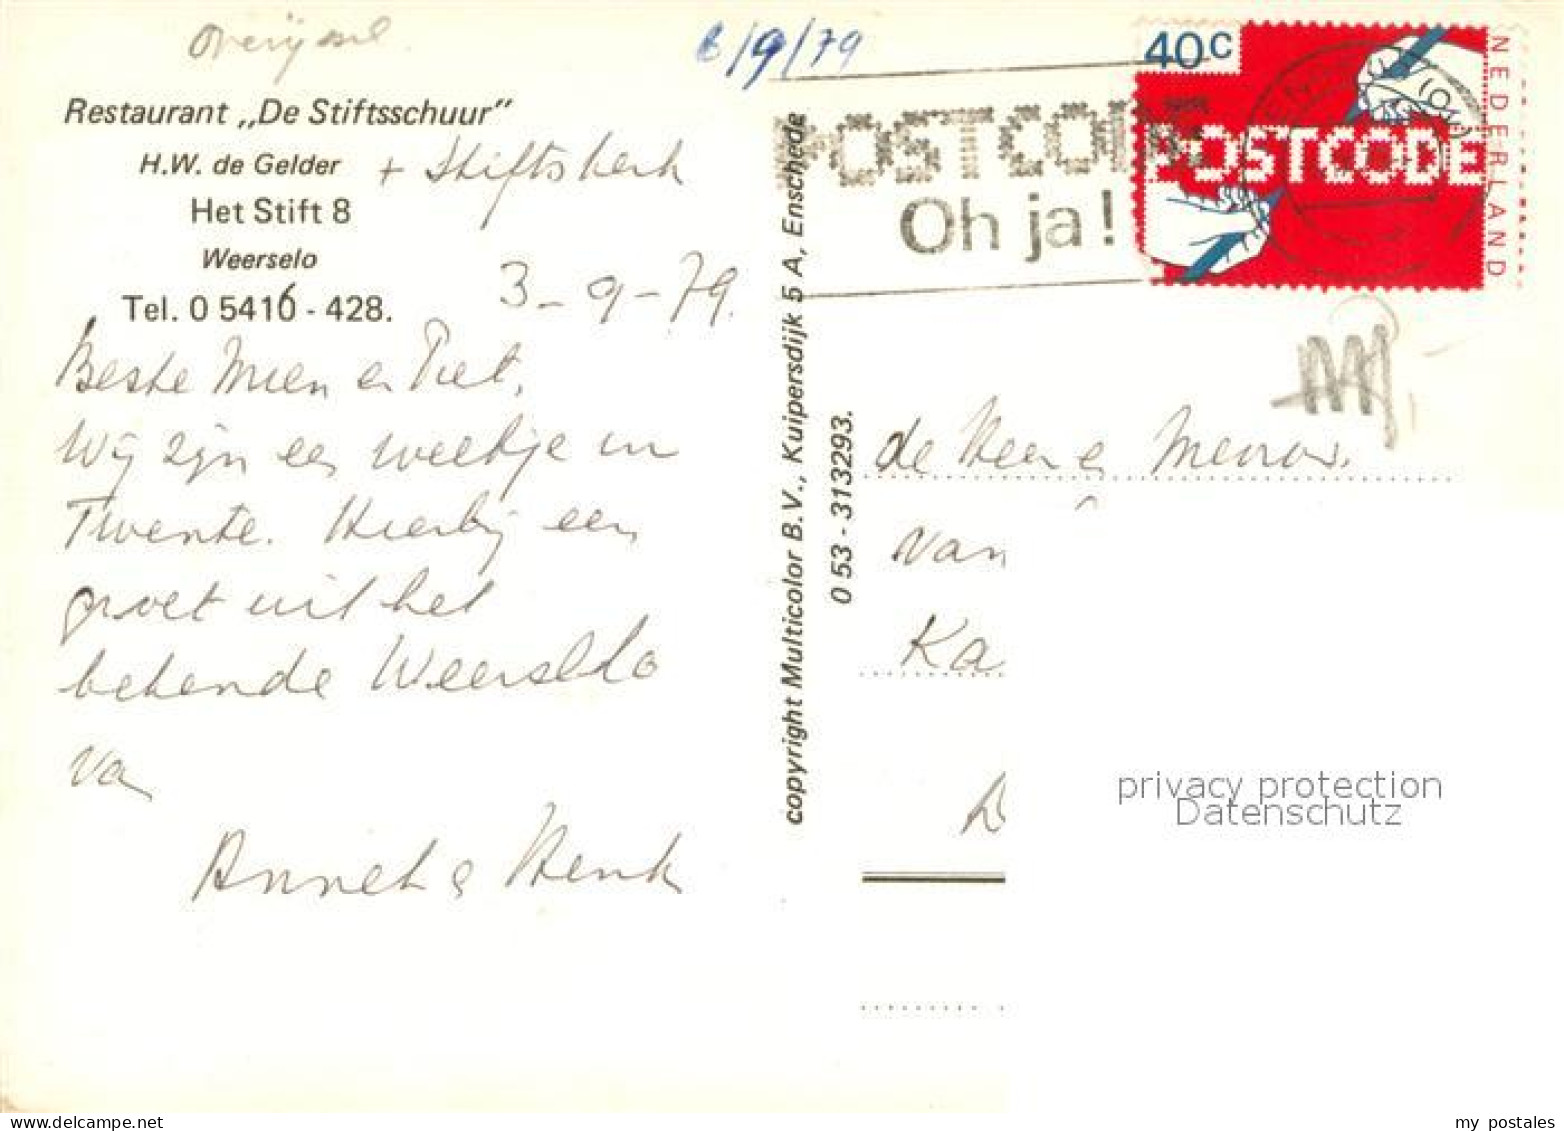 Overijssel
6/9/79
Restaurant „De Stiftsschuur”
H.W. de Gelder
+ Stiftskerk
Het Stift 8
Weerselo
Tel. 0 5416 - 428.
3-9-79.
Beste Mien en Piet,
Wij zijn een weekje in
Twente. Hierbij een
groet uit het
bekende Weerselo
van
Annet en Henk
copyright Multicolor B.V., Kuipersdijk 5 A, Enschede
0 53 - 313293.
POSTCODE
Oh ja!
40c
NEDERLAND
POSTCODE
de Heer en Mevrouw
van
Ka
privacy protection
Datenschutz
delcampe.net
my postales